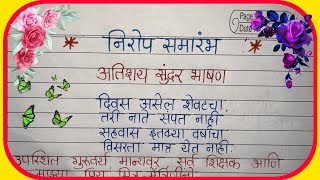 Page
Date
निरोप समारंभ
अतिशय सुंदर भाषण
दिवस असेल शेवटचा,
तरी नाते संपत नाही
सहवास इतक्या वर्षांचा
विसरता मात्र येत नाही.
उपस्थित गुरुवर्य मान्यवर, सर्व शिक्षक आणि
माझ्या प्रिय मित्र मैत्रिणींनो